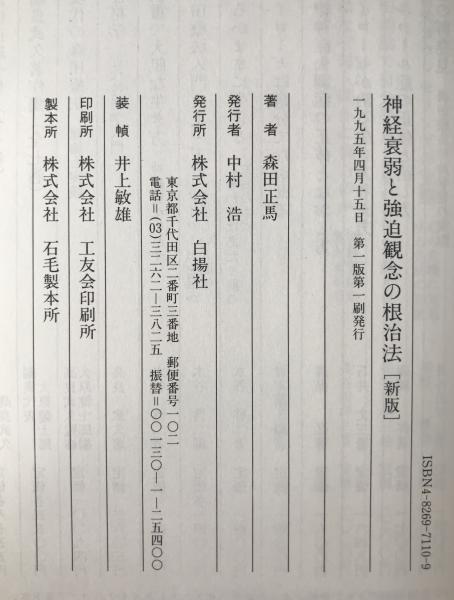 神経衰弱と強迫観念の根治法［新版］
一九九五年四月十五日　第一版第一刷発行
著者　森田正馬
発行者　中村　浩
発行所　株式会社　白揚社
東京都千代田区二番町三番地　郵便番号一〇二
電話＝(03)三二六二―三八二五　振替＝〇〇一三〇―一―二五四〇〇
装幀　井上敏雄
印刷所　株式会社　工友会印刷所
製本所　株式会社　石毛製本所
ISBN4-8269-7110-9